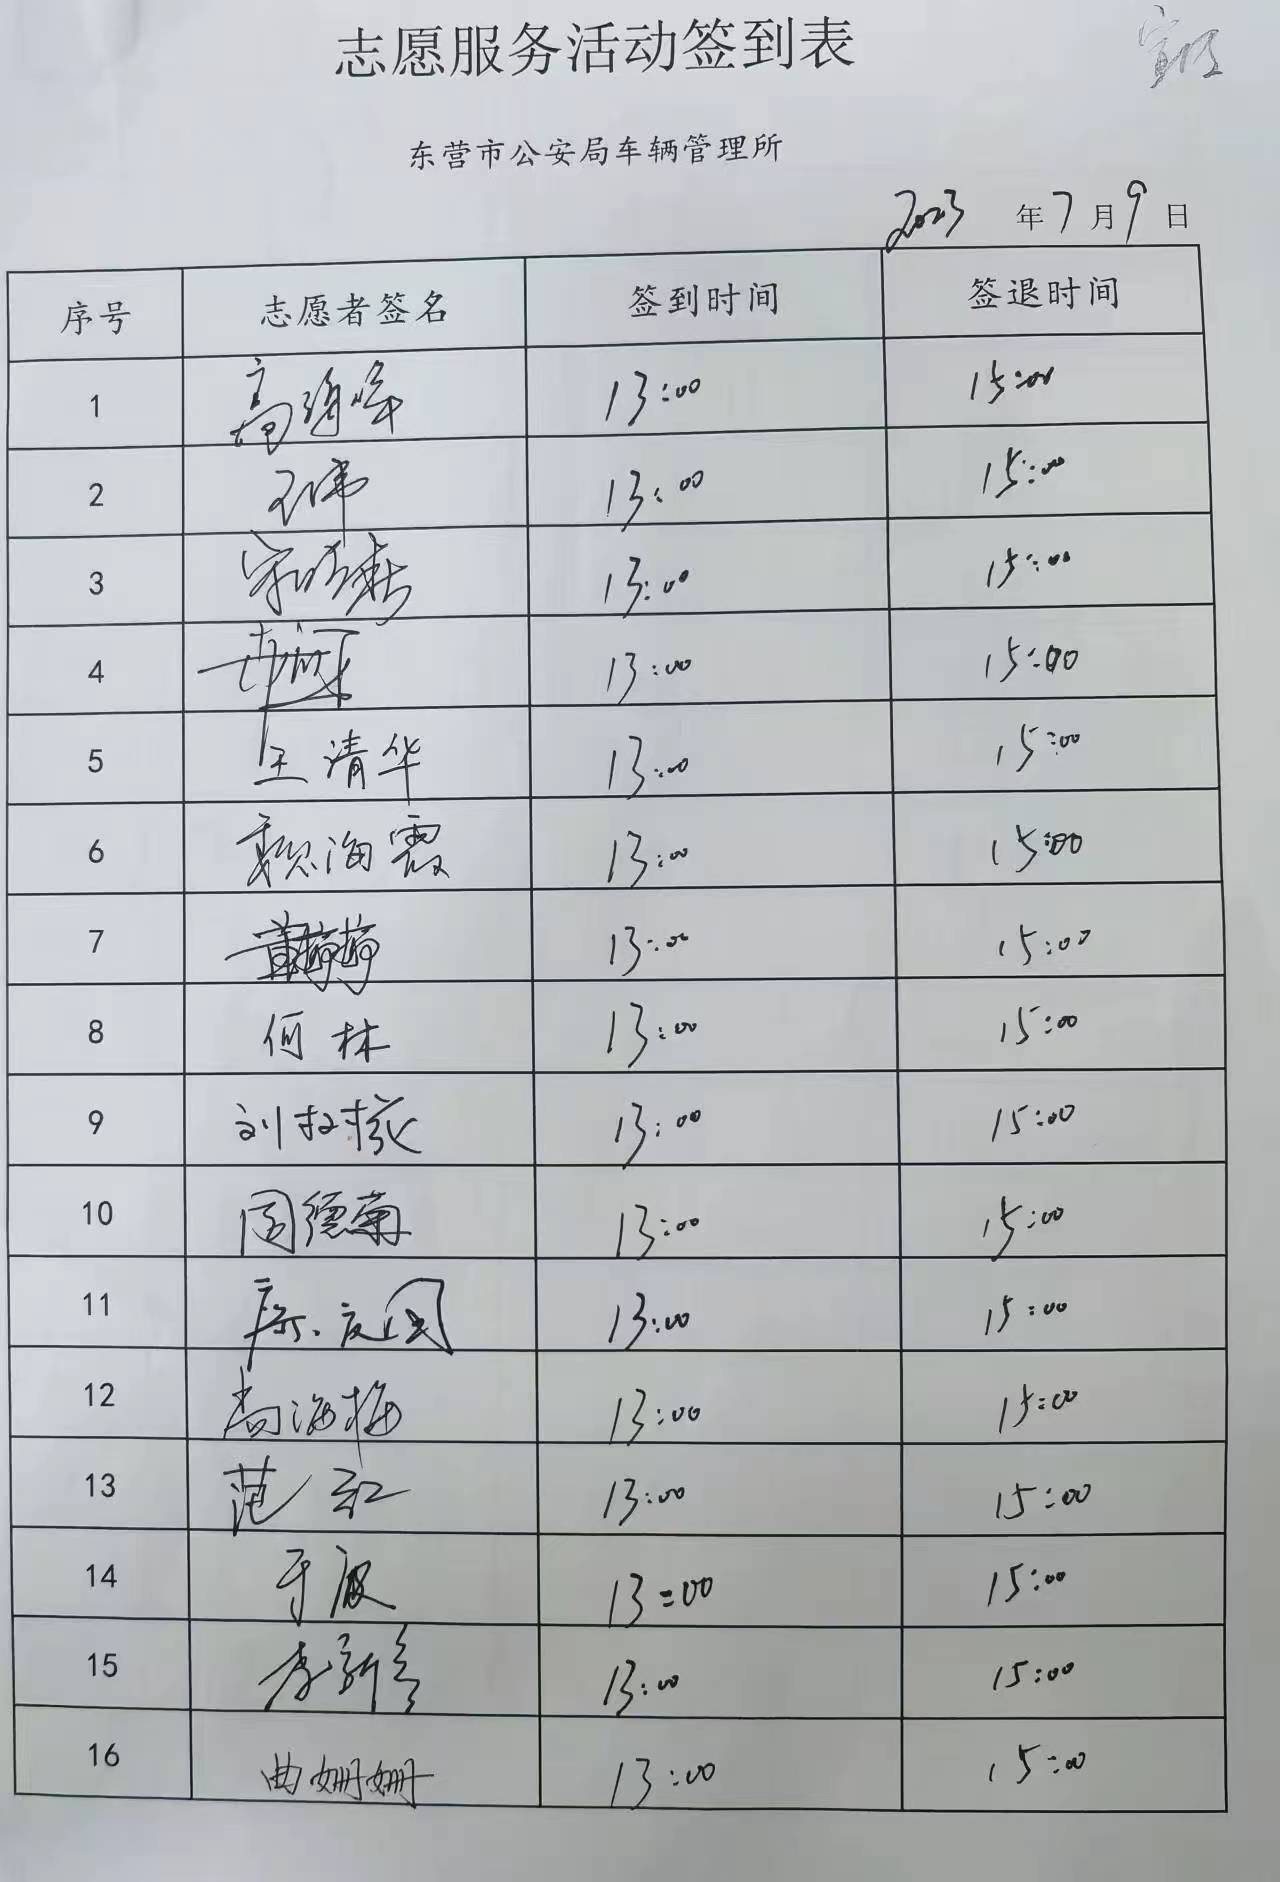 志愿服务活动签到表
东营市公安局车辆管理所
2023 年 7 月 9 日
序号 志愿者签名 签到时间 签退时间
1 13:00 15:00
2 王伟 13:00 15:00
3 13:00 15:00
4 13:00 15:00
5 王清华 13:00 15:00
6 海霞 13:00 15:00
7 董婷婷 13:00 15:00
8 何林 13:00 15:00
9 刘 13:00 15:00
10 周德菊 13:00 15:00
11 国 13:00 15:00
12 尚海梅 13:00 15:00
13 范红 13:00 15:00
14 于 13:00 15:00
15 李新 13:00 15:00
16 曲姗姗 13:00 15:00